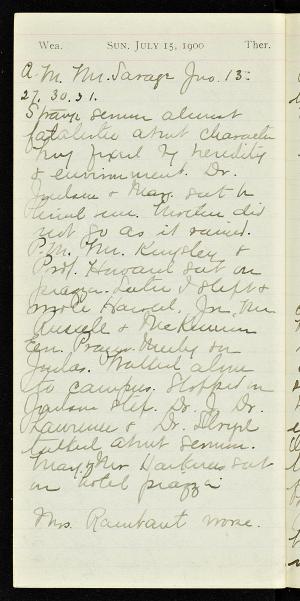 Wea. SUN. JULY 15, 1900 Ther.
A.M. Mr. Savage Jno. 13:
27. 30. 31.
Strange sermon almost
fatalistic about character
being fixed by heredity
& environment. Dr.
Judson & Mary sat in
Mother did
not go as it rained.
P.M. Mr. Kingsley &
Prof. Howard sat on
piazza. Later I slept &
wrote Harriet, Jr, Mrs
Russell & McKinnon
Eve. Prayer Meeting on
Judas. Walked alone
to campus. Stopped on
Jackson step. Dr. J. Dr.
Lawrence & Dr.
talked about sermon.
May & Mrs Harkness sat
on hotel piazza
Mrs. Rambaut worse.